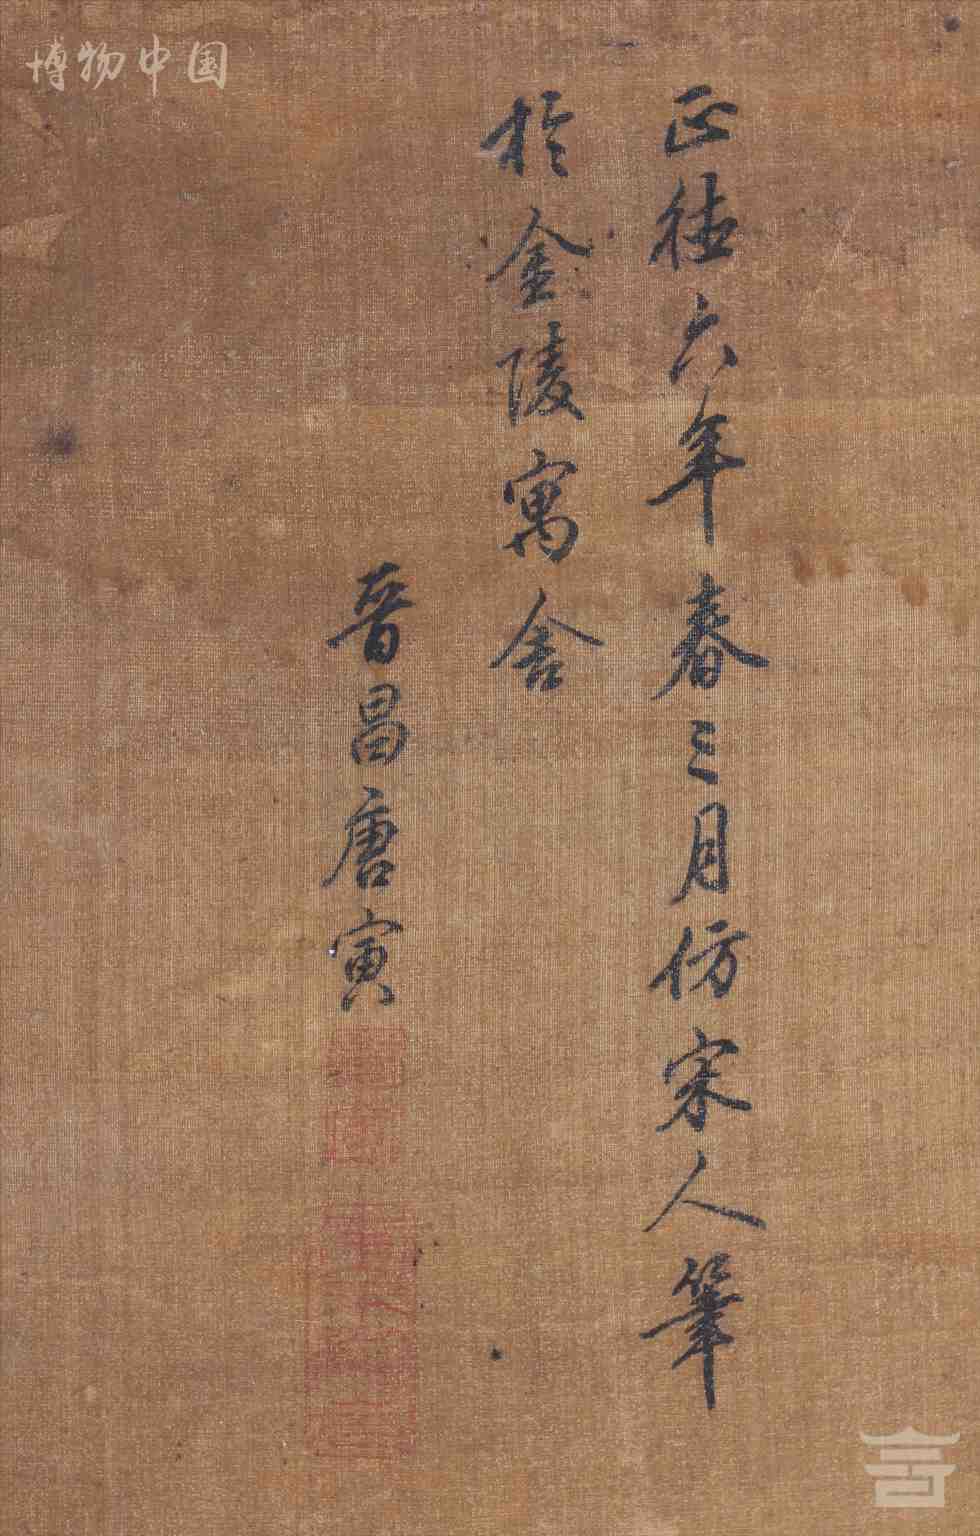 正徳六年春三月仿宋人筆
於金陵寓舍
晉昌唐寅
博物中国